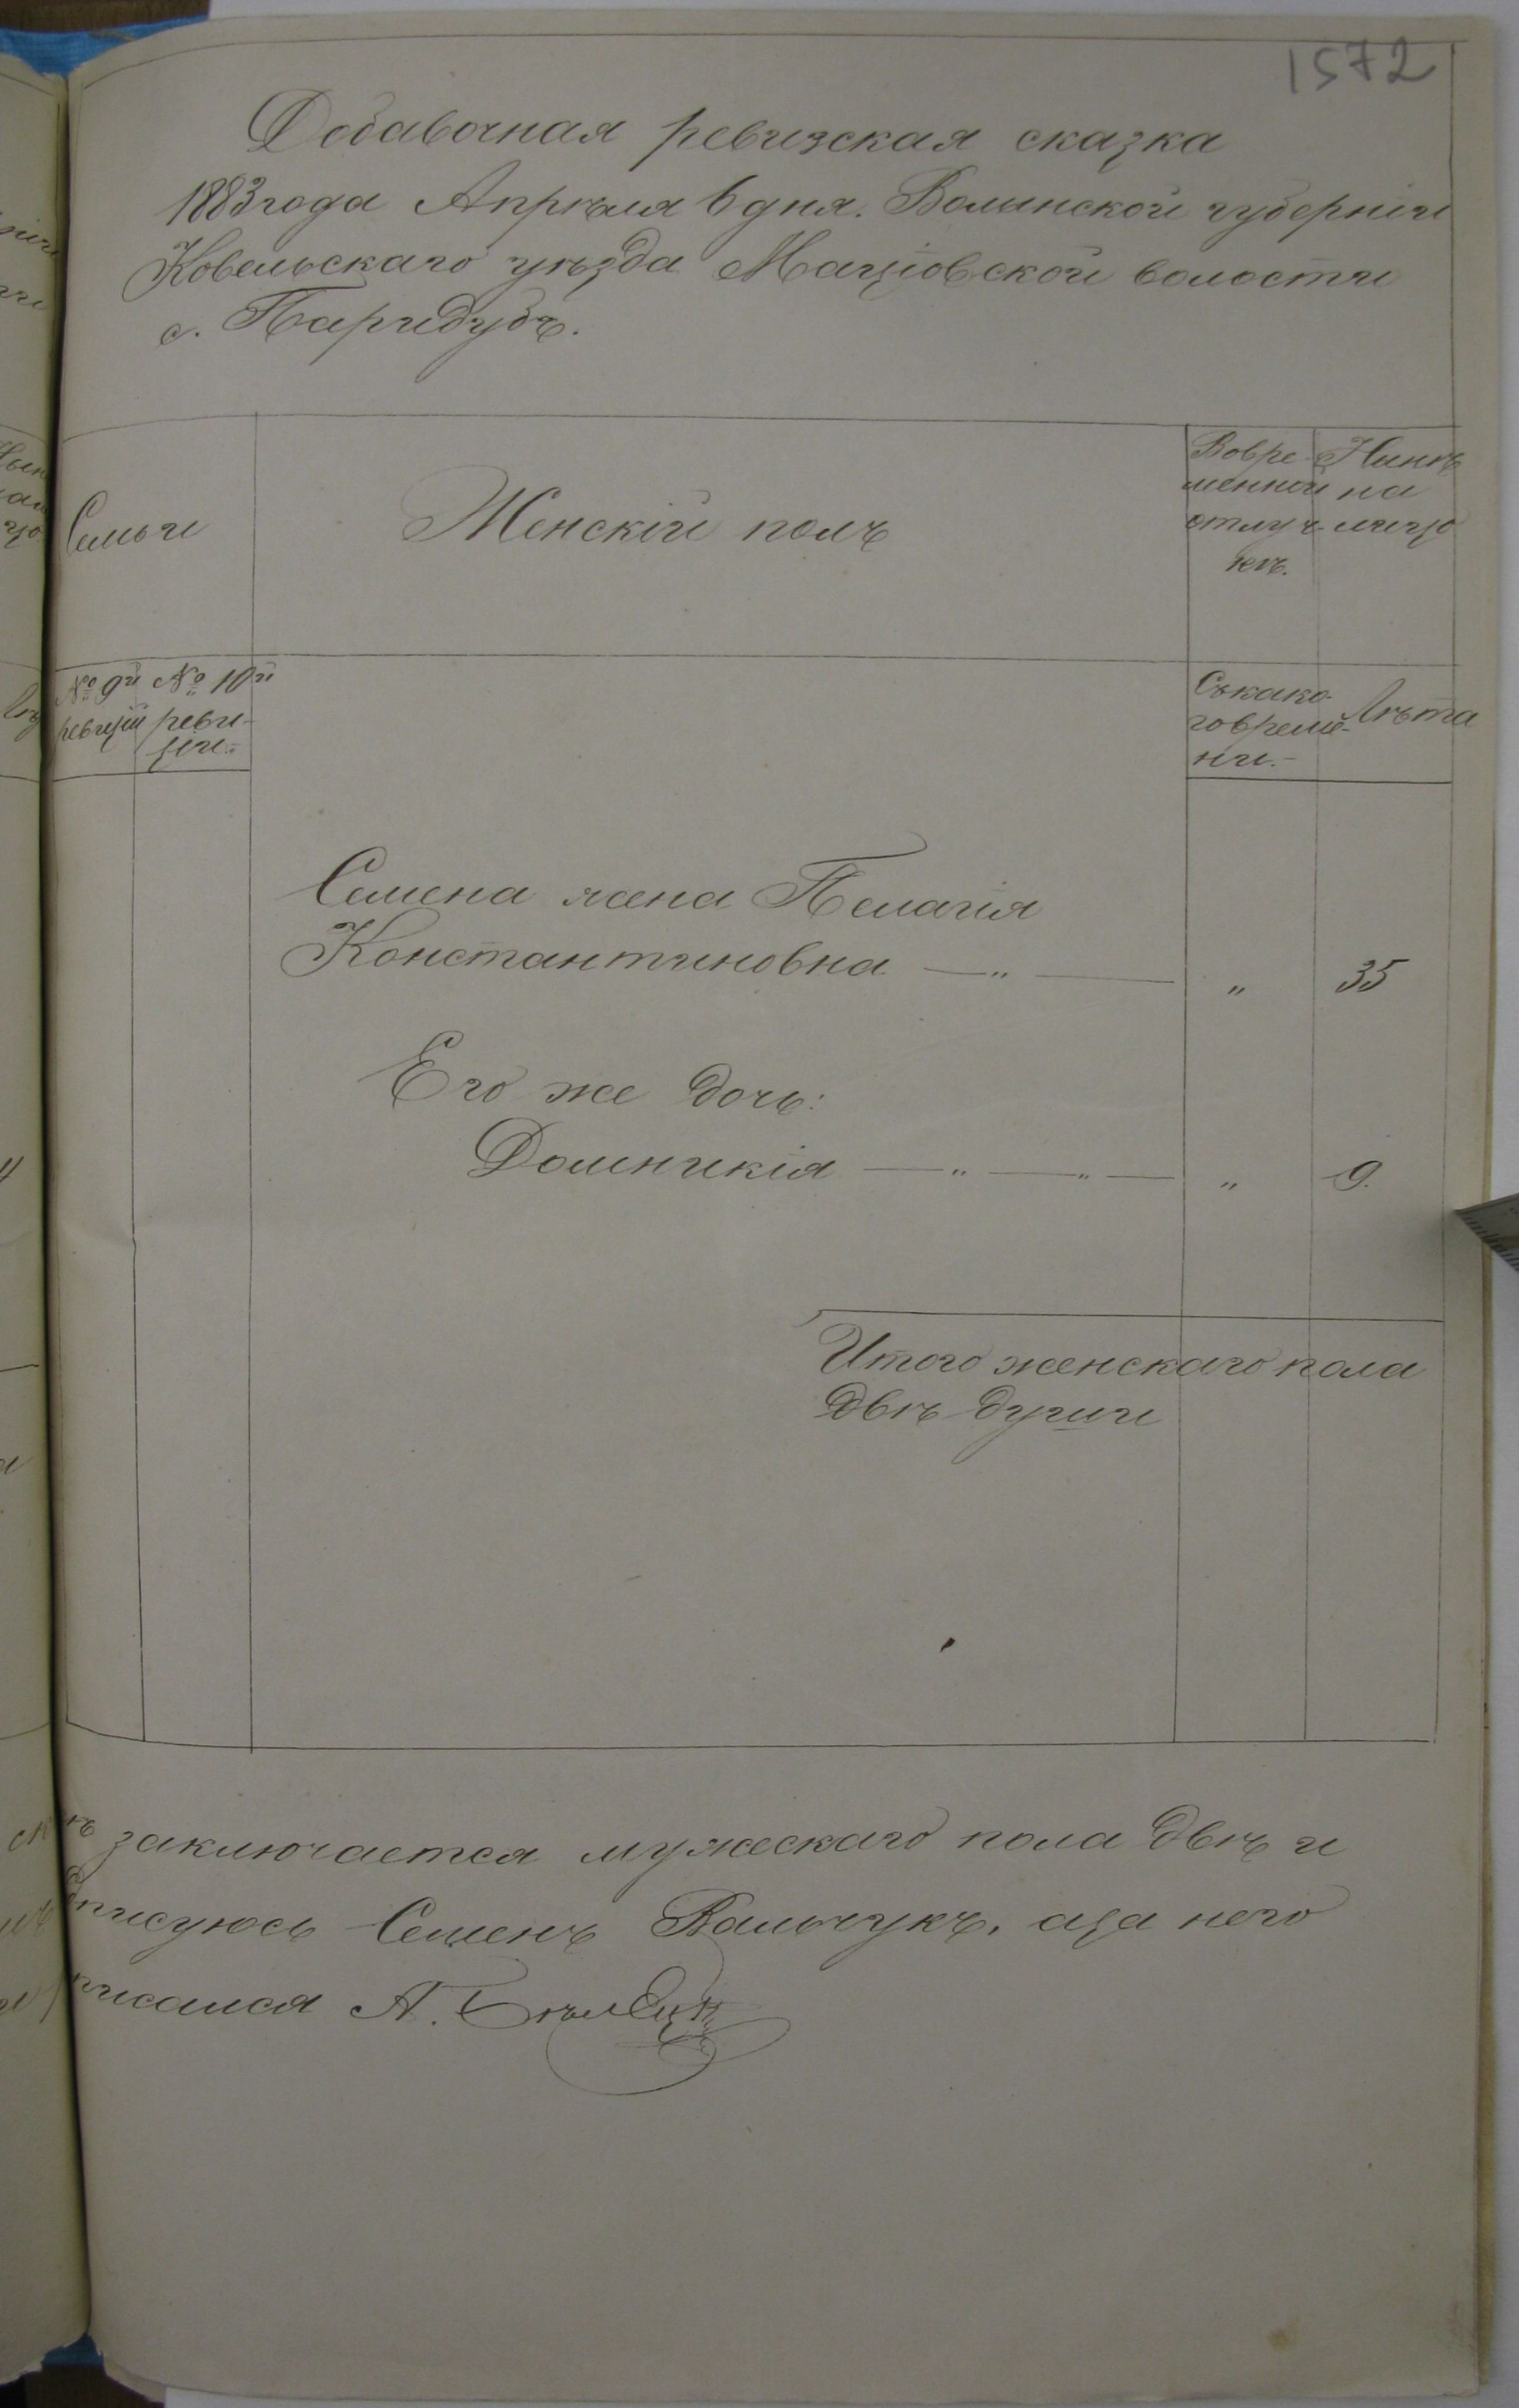 1572
Добавочная ревизская сказка
1883 года Апрѣля 6 дня. Волинской губерніи
Ковельскаго уѣзда Маціовской волости
с. Паридубъ.
Семьи
Женскій полъ
Вовре-
менной
отлуч-
кѣ.
Нинѣ
на
лицо
№ 9й
ревизіи
№ 10й
реви-
зіи.
Съкако-
говреме-
ни.-
Лѣта
Семена жена Пелагія
Константиновна — „ — „ 35
Его же дочь:
Домникія — „ — „ — „ 9.
Итого женскаго пола
двѣ души
заключается мужескаго пола двѣ и
писуюсь Семенъ Вальчукъ, аза него
писался А.